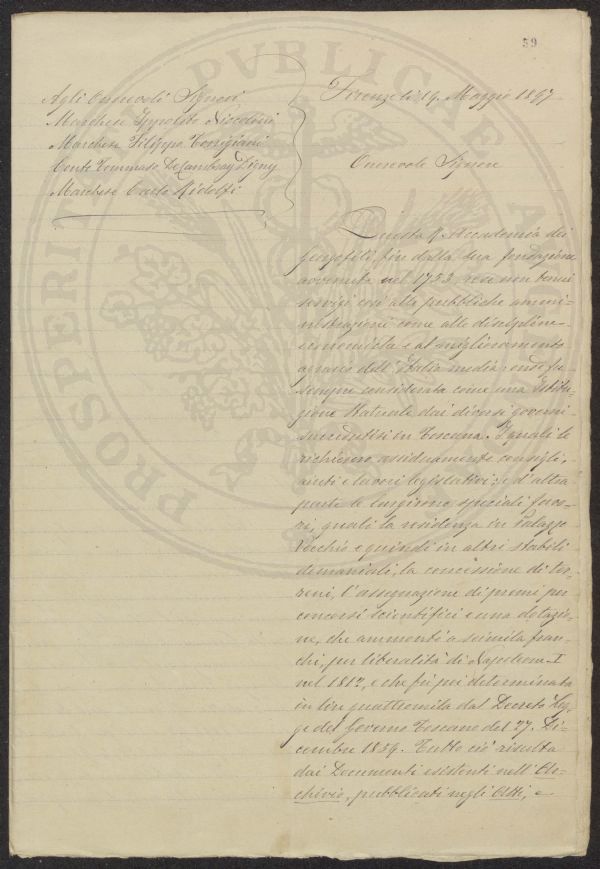 59
Agli Onorevoli Signori
Marchese Ippolito Niccolini
Marchese Filippo Torrigiani
Conte Tommaso De Cambray Digny
Marchese Carlo Ridolfi
Firenze li 19. Maggio 1897
Onorevole Signore
Questa R. Accademia dei
Georgofili, fin dalla sua fondazione
avvenuta nel 1753, rese non tenui
servigi così alla pubbliche ammi-
nistrazioni come alle discipline
economiche e al miglioramento
agrario dell'Italia media; onde fu
sempre considerata come una Istitu-
zione Statuale dai diversi governi
succedutisi in Toscana. I quali le
richiesero assiduamente consigli,
aiuti e lavori legislativi; e d'altra
parte le largirono speciali favo-
ri, quali la residenza in Palazzo
Vecchio e quindi in altri stabili
demaniali, la concessione di ter-
reni, l'assegnazione di premi per
concorsi scientifici e una dotazio-
ne, che ammontò a seimila fran-
chi, per liberalità di Napoleone I
nel 1812, e che fu poi determinata
in lire quattromila dal Decreto Leg-
ge del Governo Toscano del 27. Di-
cembre 1859. Tutto ciò risulta
dai Documenti esistenti nell'Ar-
chivio, pubblicati negli Atti, e
PROSPERITATI PVBLICAE